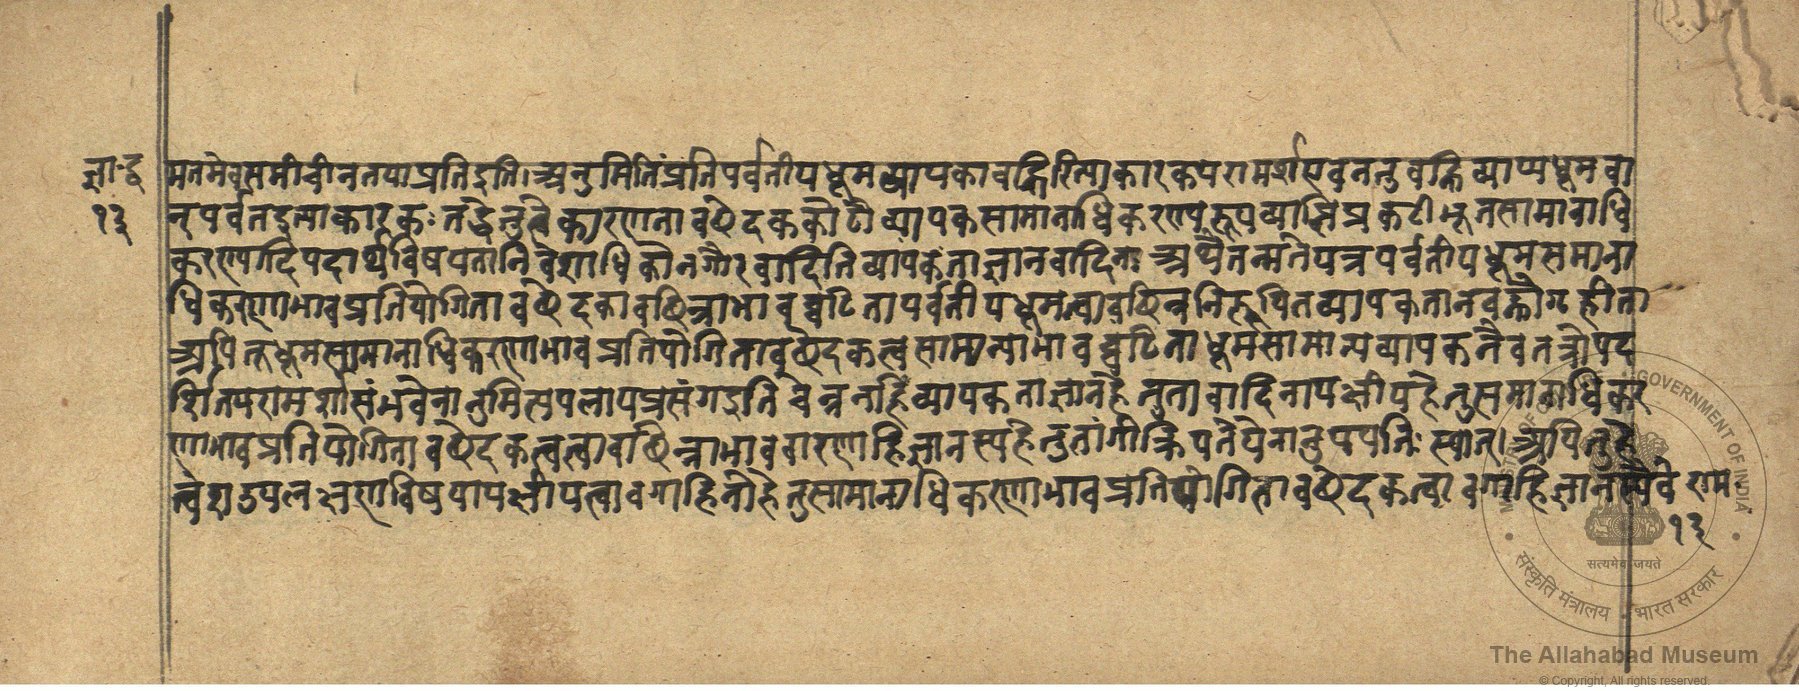 ज्ञा॰द्व
१३
मतमेव समीचीनतया प्रतिइति। अनुमितिं प्रति पर्वतीयधूमव्यापको वह्निरित्याकारकपरामर्श एव न तु वह्निव्याप्यधूमवा
न पर्वत इत्याकारकः तद्धेतुत्वे कारणतावछेदककोटौ व्यापकसामानाधिकरण्यरूपव्याप्तिप्रकटीभूतसामानाधि
करण्यादिपदार्थविषयतानिवेशाधिकौन गौरवादिति व्यापकताज्ञानवादिनः अथैतन्मते यत्र पर्वतीयधूमसमाना
धिकरणाभावप्रतियोगितावछेदकावछिन्नाभावघटिता पर्वतीयधूमत्वावछिन्ननिरूपितव्यापकता न वह्नौ गृहीता
अपि तु धूमसामानाधिकरणाभावप्रतियोगितावछेदकत्वसामान्याभावघटिता धूमसामान्यव्यापकतैव तत्रोपद
र्शितपरामर्शासंभवेनानुमित्यपलापप्रसंग इति चेन्न नहि व्यापकताज्ञानहेतुतावादिना पक्षीयहेतुसमानाधिकर
णाभावप्रतियोगितावछेदकत्वत्वावछिन्नाभाववारणाहि ज्ञानस्य हेतुतांगीक्रियते येनानुपपत्तिः स्यात्। अपि तु हे
त्वंशे उपलक्षणविषयापक्षीयत्वावगाहिनी हेतुसामानाधिकरणाभावप्रतियोगितावछेदकत्वावगाहिज्ञानस्यैवे
राम
१३
MINISTRY OF CULTURE • GOVERNMENT OF INDIA
सत्यमेव जयते
संस्कृति मंत्रालय - भारत सरकार
The Allahabad Museum
© Copyright, All rights reserved.